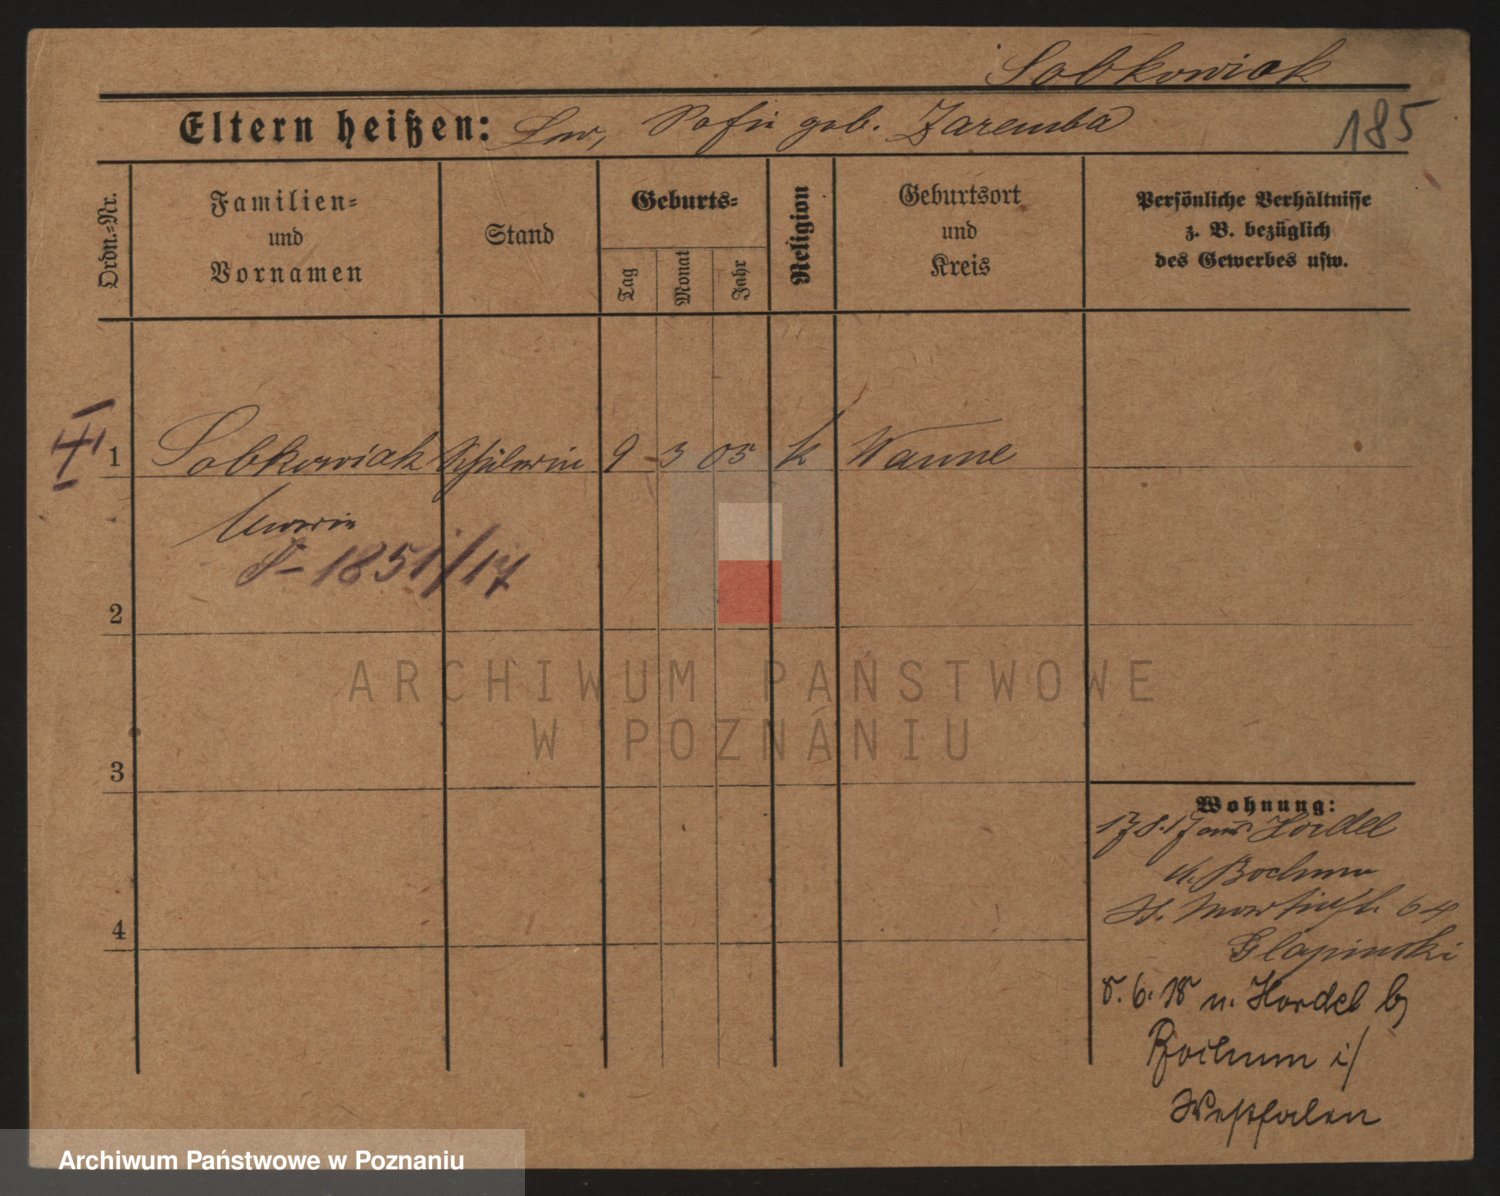 Sobkowiak
Eltern heißen: Sofie geb. Zaremba
185
Ordn.-Nr.
Familien- und Vornamen
Stand
Geburts-
Tag
Monat
Jahr
Religion
Geburtsort und Kreis
Persönliche Verhältnisse
z. B. bezüglich
des Gewerbes usw.
1 Sobkowiak Schülerin 9 3 05 k Wanne
1851/17
2
3
4
Wohnung:
17.8.17 aus Hordel
b. Bochum
St. Martinstr. 64
Glapinski
8. 6. 18 n. Hordel b/
Bochum i/
Westfalen
ARCHIWUM PAŃSTWOWE
W POZNANIU
Archiwum Państwowe w Poznaniu